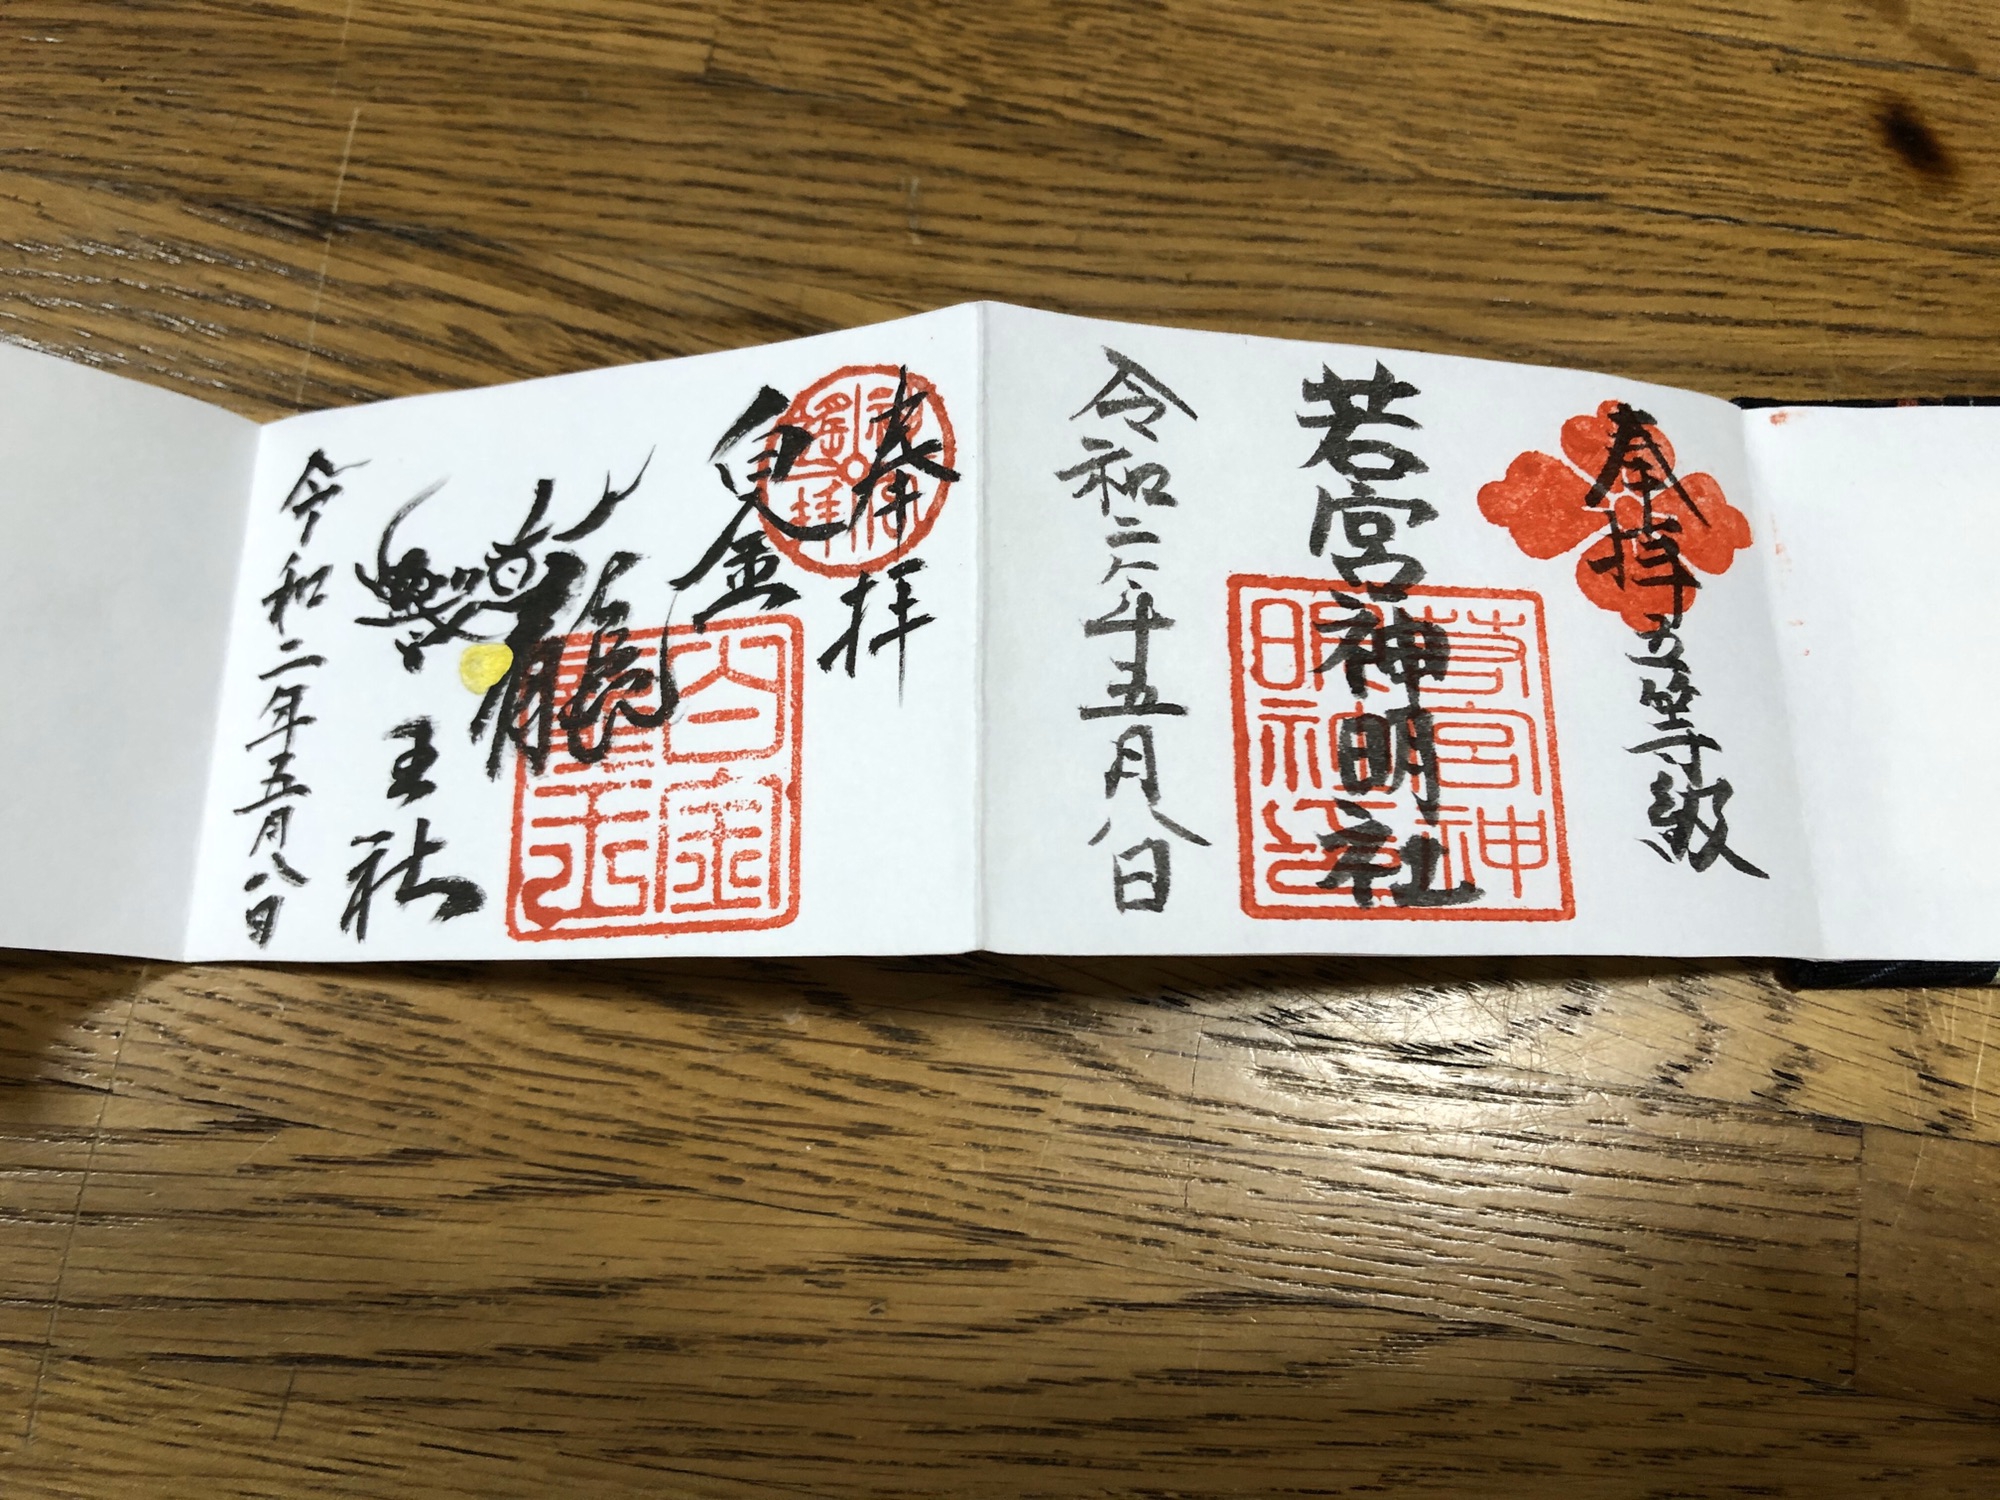 奉拝 五等級
若宮神明社
令和二年五月八日
奉拝
白金龍王社
令和二年五月八日
白金龍王